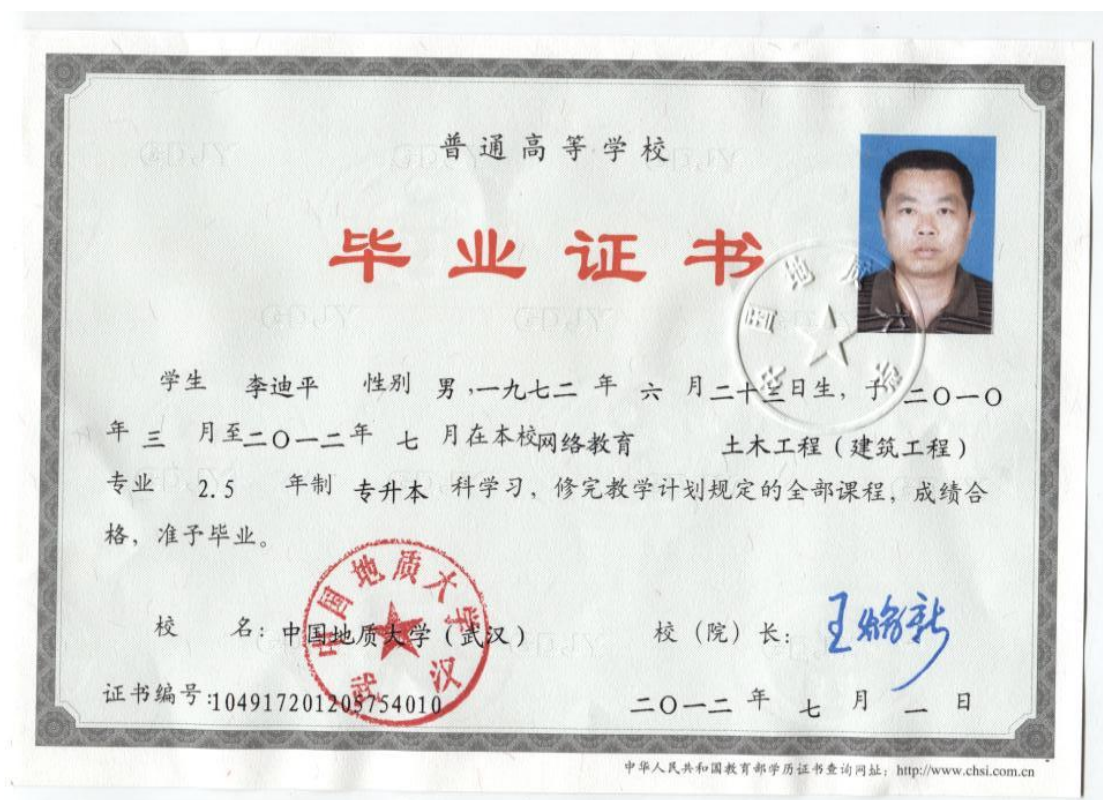 普通高等学校
毕业证书
学生 李迪平 性别 男，一九七二 年 六 月二十三日生，于 二〇一〇
年 三 月至二〇一二年 七 月在本校网络教育 土木工程（建筑工程）
专业 2.5 年制 专升本 科学习，修完教学计划规定的全部课程，成绩合
格，准予毕业。
中国地质大学
武汉
校 名：中国地质大学（武汉）
校（院）长：
证书编号：104917201205754010
二〇一二 年 七 月 一 日
中华人民共和国教育部学历证书查询网址：http://www.chsi.com.cn